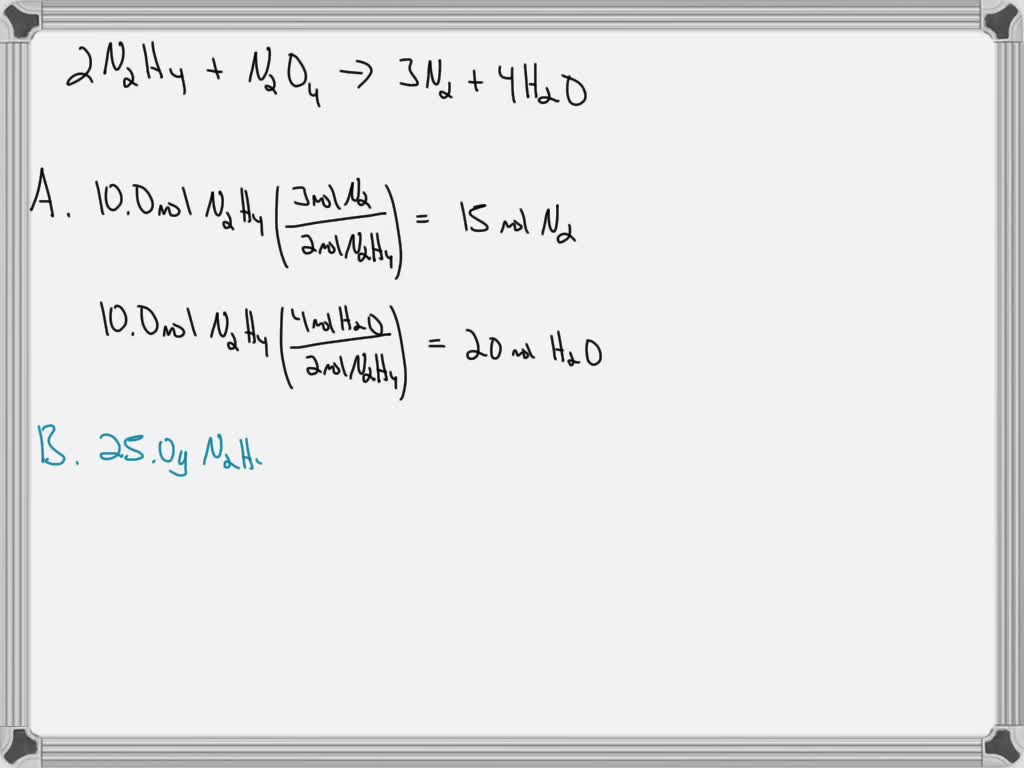 2N₂H₄ + N₂O₄ → 3N₂ + 4H₂O
A. 10.0 mol N₂H₄ (3 mol N₂ / 2 mol N₂H₄) = 15 mol N₂
10.0 mol N₂H₄ (4 mol H₂O / 2 mol N₂H₄) = 20 mol H₂O
B. 25.0g N₂H